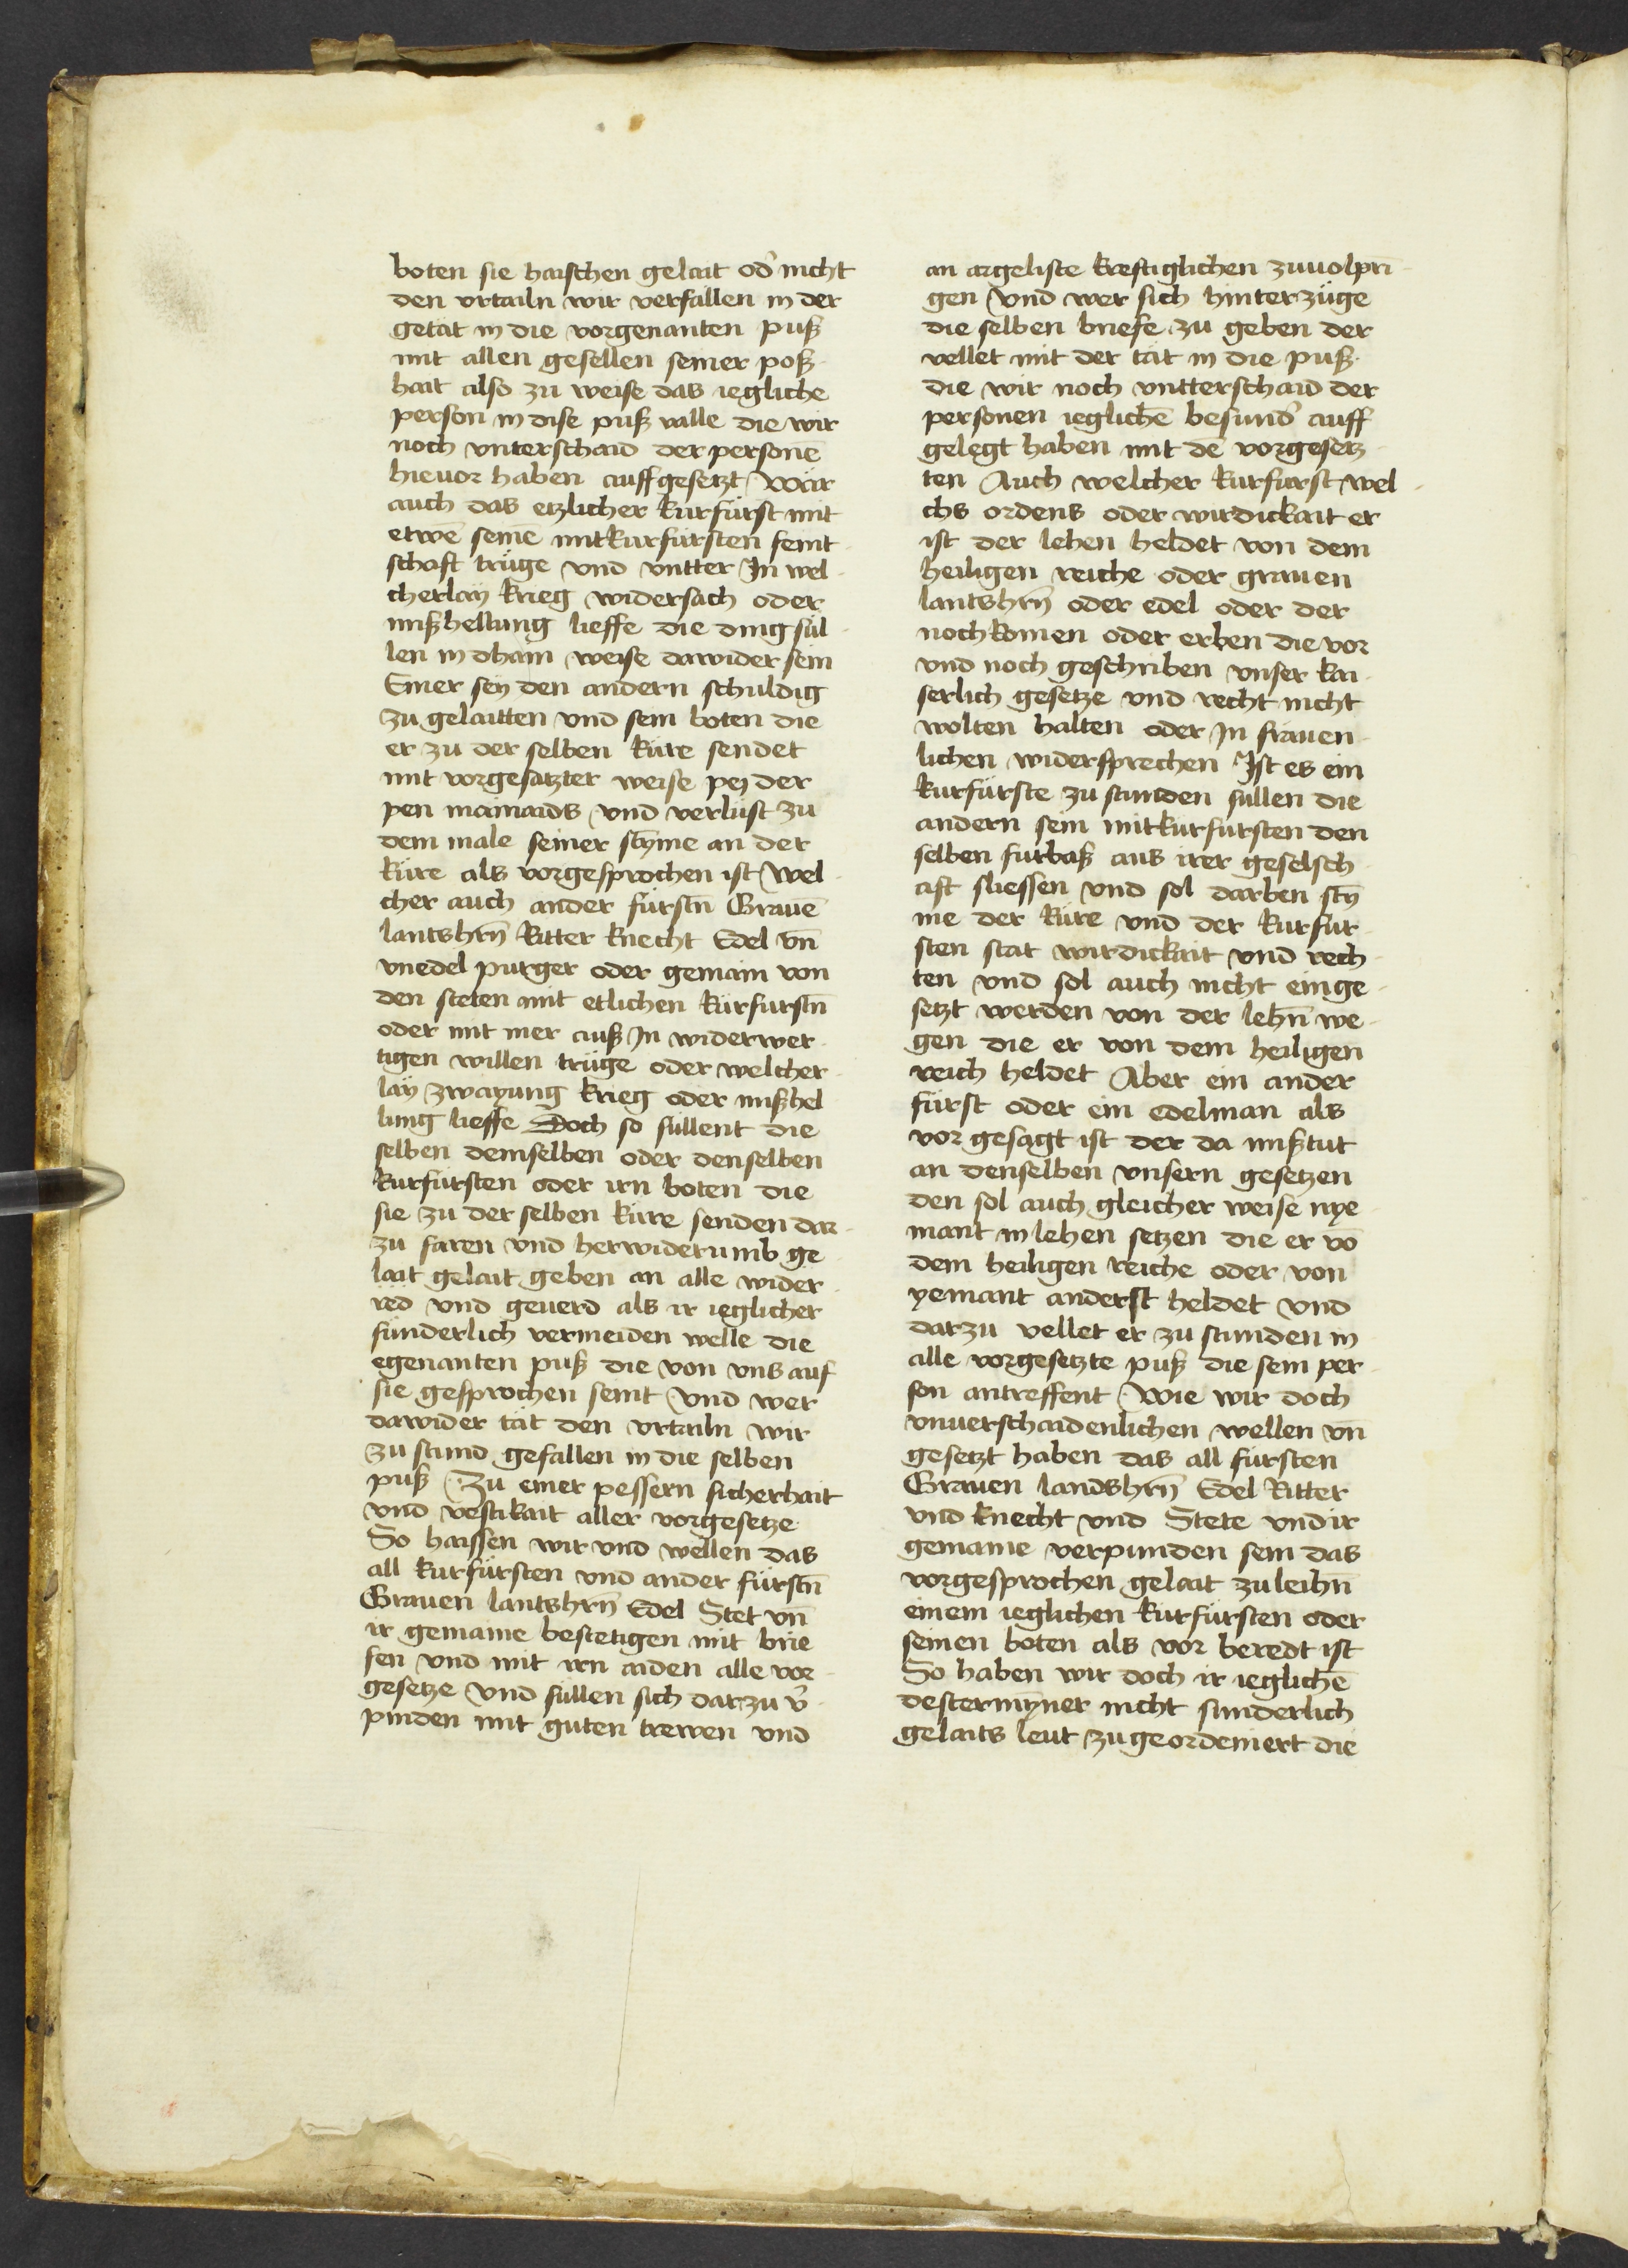 boten sie haischen gelait od̾ nicht
den vrtailn wir verfallen in der
getat in die vorgenanten puß
mit allen gesellen seiner poß-
hait also zu weise das iegliche
person in dise puß valle die wir
noch vnterschaid der personē
hieuor haben auffgesetzt Wär
auch das etzlicher kurfürst mit
etwē seinē mitkurfürsten feint-
schaft trüge vnd vntter In wel-
cherlay krieg widersach oder
mißhellung lieffe die ding sül-
len in dhain weise dawider sein
Einer sey den andern schuldig
zu gelaitten vnd sein boten die
er zu der selben küre sendet
mit vorgesatzter weise pey der
pen mainaids vnd verlüst zu
dem male seiner stȳme an der
küre als vorgesprochen ist Wel-
cher auch ander fürstn̄ Grauē
lantshrn̄ Ritter knecht Edel vn̄
vnedel purger oder gemain von
den steten mit etlichen kürfurstn̄
oder mit mer auß In widerwer-
tigen willen trüge oder welcher-
lay zwayung krieg oder mißhel-
lung lieffe Doch so süllent die
selben demselben oder denselben
kurfürsten oder irn boten die
sie zu der selben küre senden dar-
zu faren vnd herwiderumb ge-
lait gelait geben an alle wider-
red vnd geuerd als ir ieglicher
sünderlich vermeiden welle die
egenanten puß die von vns auf
sie gesprochen seint Vnd wer
dawider tät den vrtailn wir
zu stund gefallen in die selben
puß Zu einer pessern sicherhait
vnd vestikait aller vorgesetze
So haissen wir vnd wellen das
all kurfürsten vnd ander fürstn̄
Grauen lantshrn̄ Edel Stet vn̄
ir gemaine bestetigen mit brie-
fen vnd mit irn aiden alle vor-
gesetze Vnd süllen sich darzu v̾-
pinden mit guten trewen vnd
an argeliste kreftiglichen zuuolpri-
gen Vnd wer sich hinterzüge
die selben briefe zu geben der
vellet mit der tät in die puß
die wir noch vntterschaid der
personen ieglichē besund̾ auff
gelegt haben mit dē vorgesetz-
ten Auch welcher kurfürst wel-
chs ordens oder wirdickait er
ist der lehen heldet von dem
heiligen reiche oder grauen
lantshrn̄ oder edel oder der
nochkomen oder erben die vor
vnd noch geschriben vnser kai-
serlich gesetze vnd recht nicht
wolten halten oder In fräuen-
lichen widersprechen Ist es ein
kurfürste zu stunden süllen die
andern sein mitkurfürsten den
selben fürbaß aus irer geselsch-
aft sliessen vnd sol darben stȳ-
me der küre vnd der kurfür-
sten stat wirdickait vnd rech-
ten vnd sol auch nicht einge-
setzt werden von der lehn̄ we-
gen die er von dem heiligen
reich heldet Aber ein ander
fürst oder ein edelman als
vor gesagt ist der da mißtut
an denselben vnsern gesetzen
den sol auch gleicher weise nye-
mant in lehen setzen die er vō
dem heiligen reiche oder von
yemant anderst heldet vnd
darzu vellet er zu stunden in
alle vorgesetzte puß die sein per-
son antreffent Wie wir doch
vnuerschaidenlichen wellen vn̄
gesetzt haben das all fürsten
Grauen landshrn̄ Edel Ritter
vnd knecht vnd Stete vnd ir
gemaine verpunden sein das
vorgesprochen gelait zuleihn̄
einem ieglichen kurfürsten oder
seinen boten als vor beredt ist
So haben wir doch ir ieglichē
destermȳner nicht sunderlich
gelaits leut zugeordeniert die